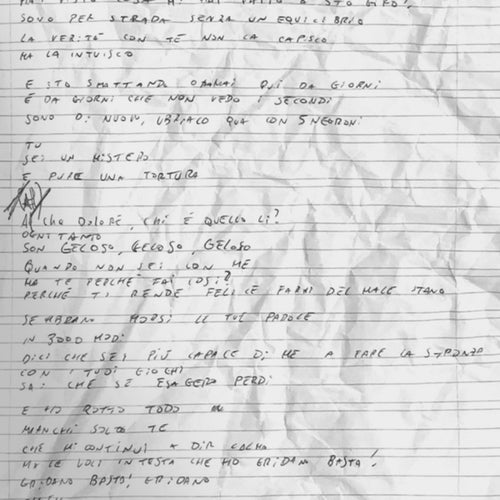 HAI VISTO COSA MI HAI FATTO O STO GIRO?
SOVO PER STRADA SENZA UN EQUILIBRIO
LA VERITÀ CON TE NON LA CAPISCO
MA LA INTUISCO
E STO SMATTANDO ORAMAI QUI DA GIORNI
E DA GIORNI CHE NON VEDO I SECONDI
SONO DI NUOVO, UBRIACO QUA CON 5 NEGRONI
TU
SEI UN MISTERO
E PURE UNA TORTURA
Che DOLORE, CHI È QUELLO LÌ?
OGNI TANTO
SON GELOSO, GELOSO, GELOSO
QUANDO NON SEI CON ME
MA TE PERCHÉ FAI COSÌ?
PERCHÉ TI RENDE FELICE FARMI DEL MALE
SEMBRANO MORSI LE TUE PAROLE
IN 3000 MODI
DICI CHE SEI PIÙ CAPACE DI ME A FARE LA STRONZA
CON I TUOI GIOCHI
SAI CHE SE ESAGERO PERDI
E HO ROTTO TUTTO
MANCHI SOLO TE
CHE MI CONTINUI A DIR CALMA
MA LE VOCI IN TESTA CHE HO GRIDANO BASTA!
GRIDANO BASTA! GRIDANO